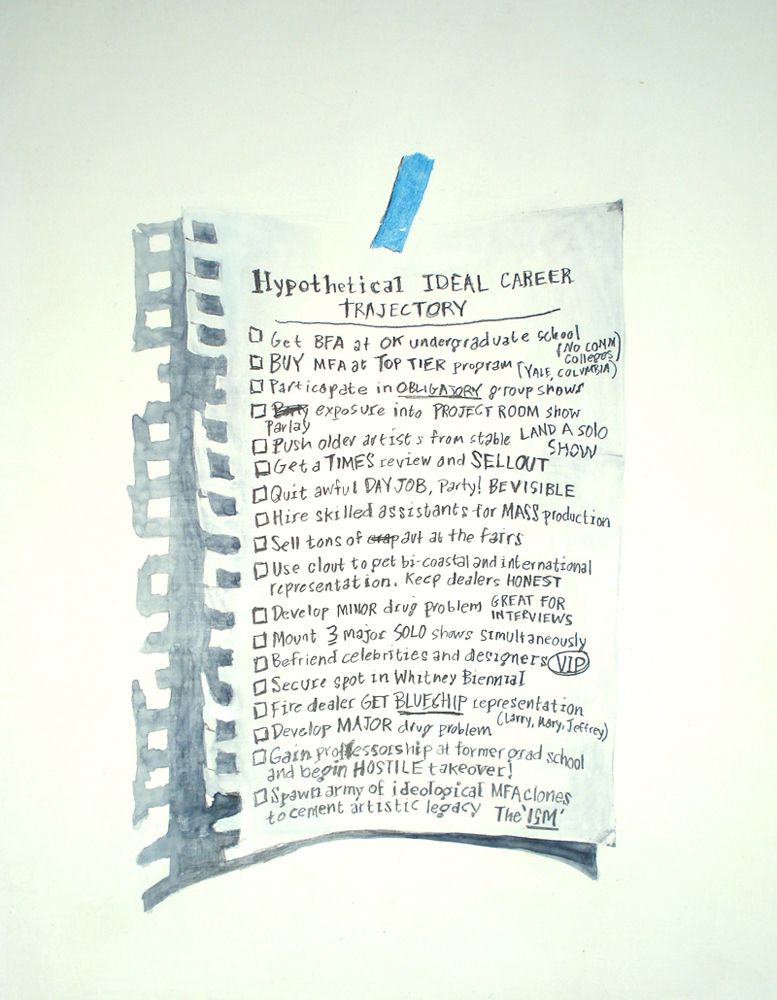 Hypothetical IDEAL CAREER
TRAJECTORY
Get BFA at OK undergraduate school
(NO COMM Colleges)
BUY MFA at TOP TIER program (YALE, COLUMBIA)
Participate in OBLIGATORY group shows
Parlay exposure into PROJECT ROOM show
Push older artists from stable LAND A SOLO
SHOW
Get a TIMES review and SELLOUT
Quit awful DAY JOB, Party! BE VISIBLE
Hire skilled assistants for MASS production
Sell tons of crap art at the fairs
Use clout to get bi-coastal and international
representation. Keep dealers HONEST
Develop MINOR drug problem GREAT FOR
INTERVIEWS
Mount 3 major SOLO shows simultaneously
Befriend celebrities and designers VIP
Secure spot in Whitney Biennial
Fire dealer GET BLUECHIP representation
(Larry, Mary, Jeffrey)
Develop MAJOR drug problem
Gain proffessorship at former grad school
and begin HOSTILE takeover!
Spawn army of ideological MFA clones
to cement artistic legacy The 'ISM'